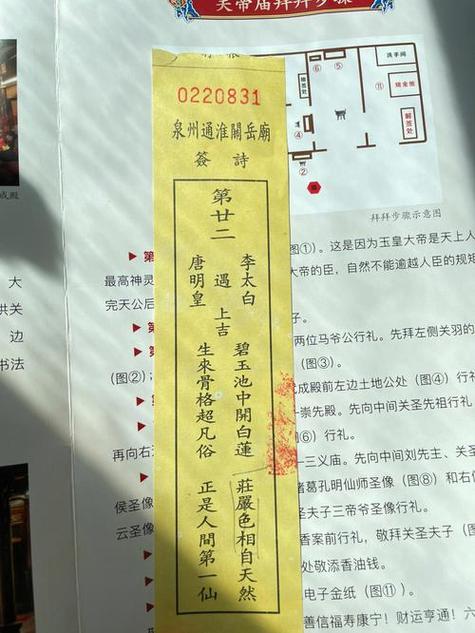 关帝庙拜拜步骤
0220831
泉州通淮關岳廟
簽 詩
第廿二
李太白
遇 上吉
唐明皇
碧玉池中開白蓮 莊嚴色相自天然
生來骨格超凡俗 正是人間第一仙
⑥ ⑤ 洗手间
⑪ 烧金炉
④ 解签处
②
拜拜步骤示意图
成殿
大
供关
边
书法
图①）。这是因为玉皇大帝是天上人
最高神灵
大帝的臣，自然不能逾越人臣的规矩
完天公后
子。
两位马爷公行礼。先拜左侧关羽的
（图③）。
（图②）；
成殿前左边土地公处（图④）行礼
崇先殿。先向中间关圣先祖行礼
再向右
⑥）行礼。
三义庙。先向中间刘先主、关圣
诸葛孔明仙师圣像（图⑧）和右
侯圣像
圣夫子三帝爷圣像行礼。
云圣像
香案前行礼，敬拜关圣夫子（图
处敬添香油钱。
电子金纸（图⑪）。
善信福寿康宁！财运亨通！六